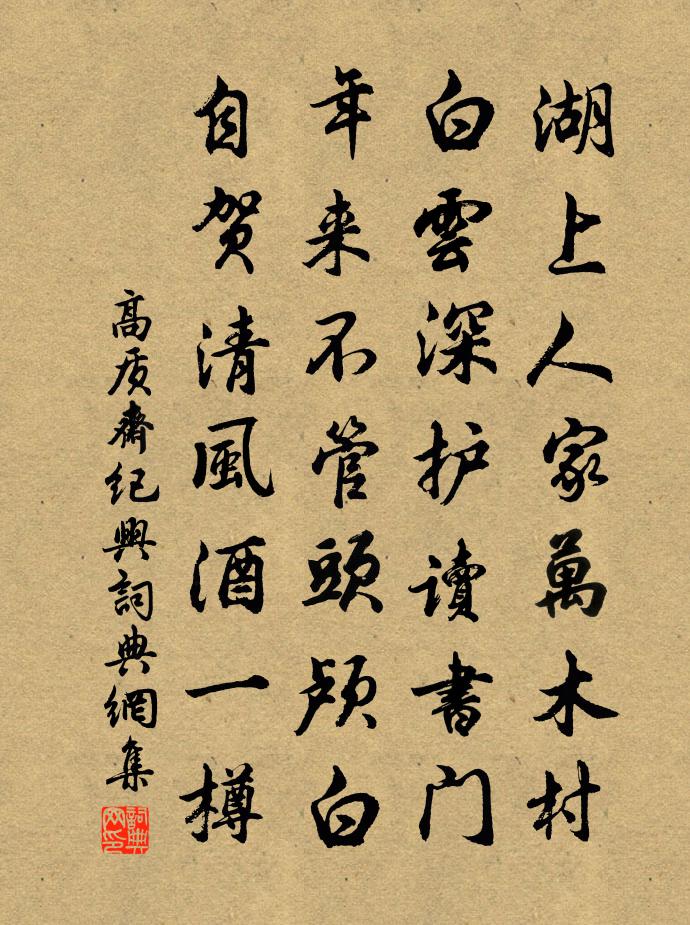 湖上人家萬木村
白雲深护讀書門
年来不管頭颅白
自贺清風酒一樽
高质齋纪興詞典網集
詞典网印